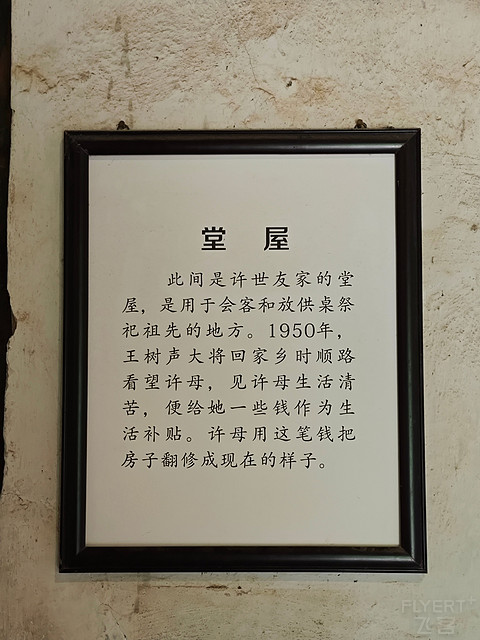 堂 屋
此间是许世友家的堂
屋，是用于会客和放供桌祭
祀祖先的地方。1950年，
王树声大将回家乡时顺路
看望许母，见许母生活清
苦，便给她一些钱作为生
活补贴。许母用这笔钱把
房子翻修成现在的样子。
FLYERT
飞客